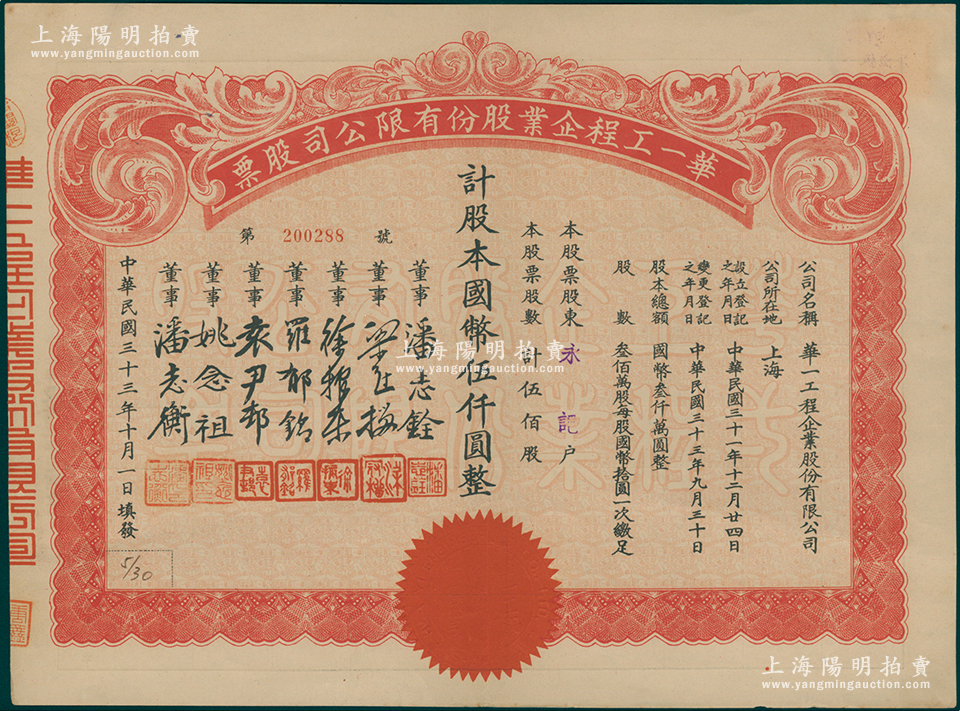 上海陽明拍賣
www.yangmingauction.com
華一工程企業股份有限公司股票
公司名稱 華一工程企業股份有限公司
公司所在地 上海
設立登記之年月日 中華民國三十一年十二月廿四日
變更登記之年月日 中華民國三十三年九月三十日
股本總額 國幣叁仟萬圓整
股數 叁佰萬股每股國幣拾圓一次繳足
本股票股東 永記户
本股票股數 計伍佰股
計股本國幣伍仟圓整
第 200288 號
董事 潘志銓
董事
董事
董事 羅郁銘
董事 袁尹邨
董事 姚念祖
董事 潘志衡
中華民國三十三年十月一日填發
5/30
上海陽明拍賣
www.yangmingauction.com
上海陽明拍賣
www.yangmingauction.com